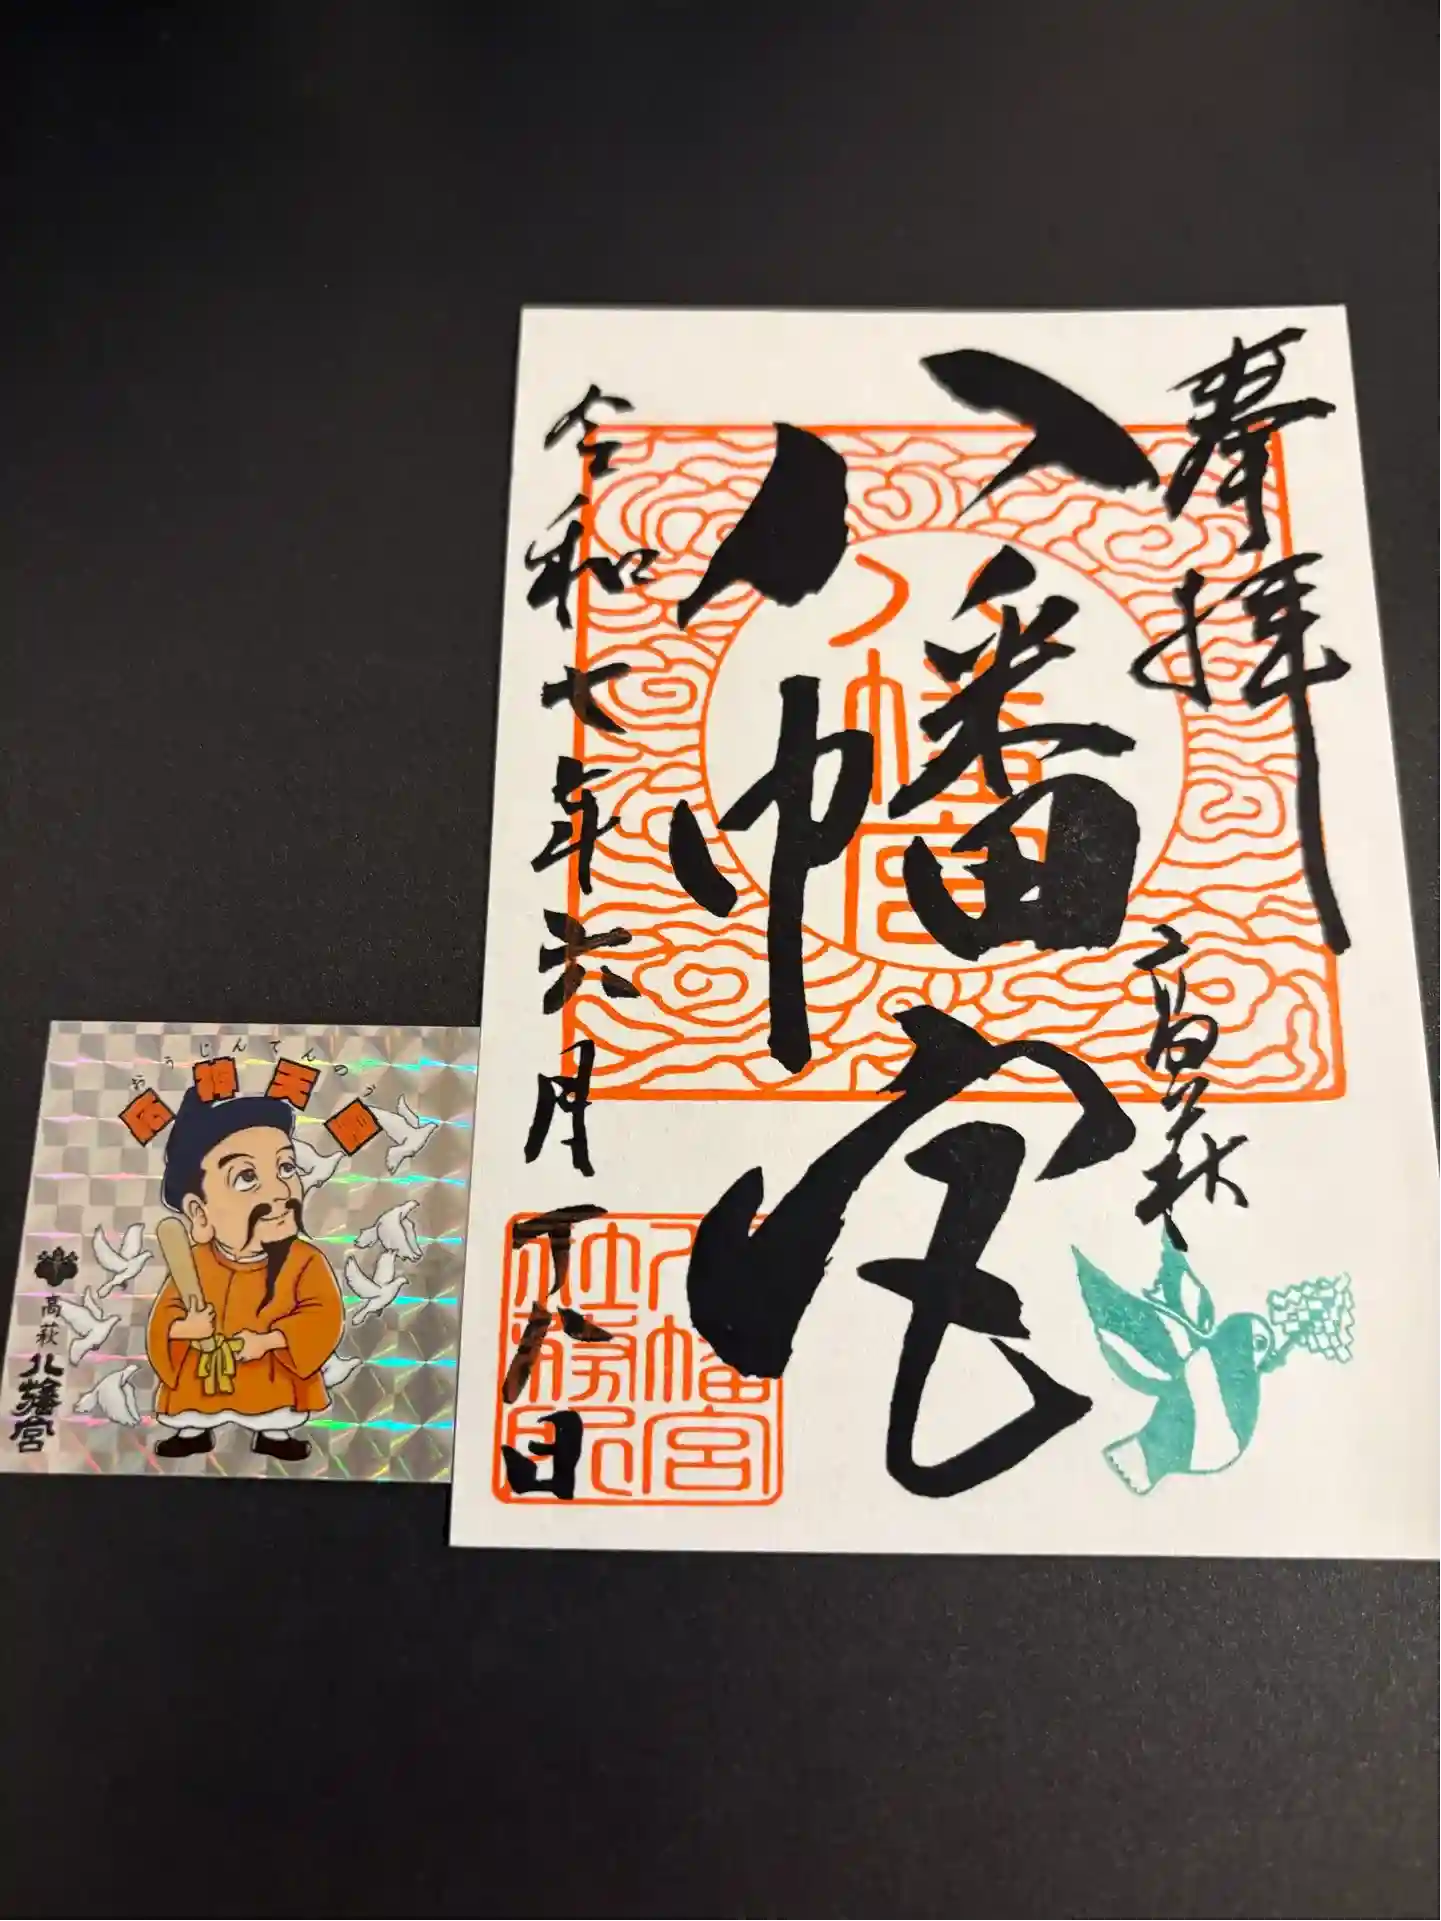 奉拝
高萩
八幡宮
八幡宮
令和七年六月十八日
八幡宮
社務所
おうじんてんのう
応神天皇
高萩
八幡宮